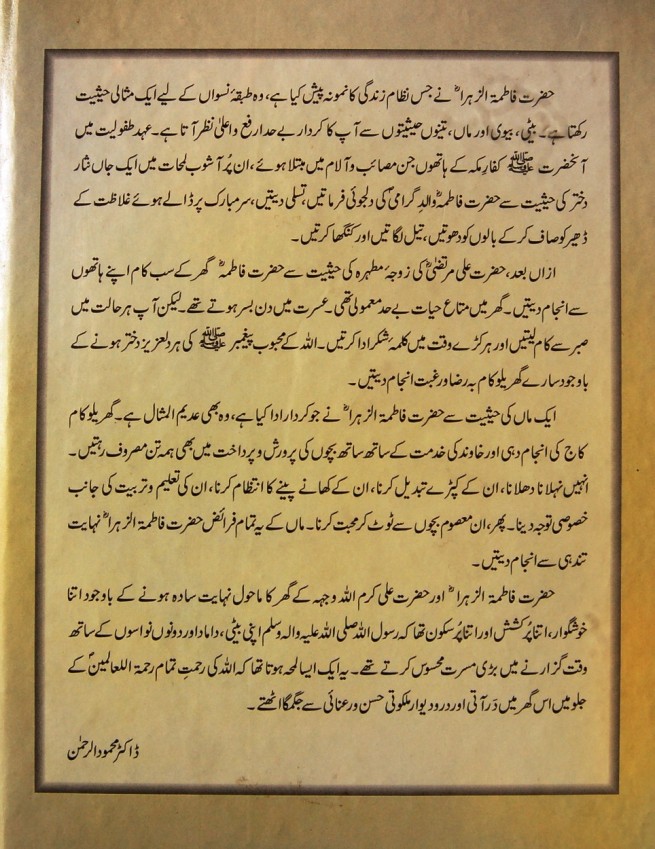 حضرت فاطمۃ الزہراؓ نے جس نظام زندگی کا نمونہ پیش کیا ہے، وہ طبقۂ نسواں کے لیے ایک مثالی حیثیت
رکھتا ہے۔ بیٹی، بیوی اور ماں، تینوں حیثیتوں سے آپ کا کردار بے حد ارفع و اعلیٰ نظر آتا ہے۔ عہد طفولیت میں
آنحضرت ﷺ کفارِ مکہ کے ہاتھوں جن مصائب و آلام میں مبتلا ہوئے، ان پُر آشوب لمحات میں ایک جاں نثار
دختر کی حیثیت سے حضرت فاطمہؓ والدِ گرامیؐ کی دلجوئی فرماتیں، تسلی دیتیں، سر مبارک پر ڈالے ہوئے غلاظت کے
ڈھیر کو صاف کر کے بالوں کو دھوتیں، تیل لگاتیں اور کنگھا کرتیں۔
ازاں بعد، حضرت علی مرتضیٰؓ کی زوجۂ مطہرہ کی حیثیت سے حضرت فاطمہؓ گھر کے سب کام اپنے ہاتھوں
سے انجام دیتیں۔ گھر میں متاع حیات بے حد معمولی تھی۔ عسرت میں دن بسر ہوتے تھے۔ لیکن آپ ہر حالت میں
صبر سے کام لیتیں اور ہر کڑے وقت میں کلمۂ شکر ادا کرتیں۔ اللہ کے محبوب پیغمبر ﷺ کی ہر دلعزیز دختر ہونے کے
باوجود سارے گھریلو کام بہ رضا و رغبت انجام دیتیں۔
ایک ماں کی حیثیت سے حضرت فاطمۃ الزہراؓ نے جو کردار ادا کیا ہے، وہ بھی عدیم المثال ہے۔ گھریلو کام
کاج کی انجام دہی اور خاوند کی خدمت کے ساتھ ساتھ بچوں کی پرورش و پرداخت میں بھی ہمہ تن مصروف رہتیں۔
انہیں نہلانا دھلانا، ان کے کپڑے تبدیل کرنا، ان کے کھانے پینے کا انتظام کرنا، ان کی تعلیم و تربیت کی جانب
خصوصی توجہ دینا۔ پھر، ان معصوم بچوں سے ٹوٹ کر محبت کرنا۔ ماں کے یہ تمام فرائض حضرت فاطمۃ الزہراؓ نہایت
تندہی سے انجام دیتیں۔
حضرت فاطمۃ الزہراؓ اور حضرت علی کرم اللہ وجہہ کے گھر کا ماحول نہایت سادہ ہونے کے باوجود اتنا
خوشگوار، اتنا پُر کشش اور اتنا پُر سکون تھا کہ رسول اللہ صلی اللہ علیہ والہ وسلم اپنی بیٹی، داماد اور دونوں نواسوں کے ساتھ
وقت گزارنے میں بڑی مسرت محسوس کرتے تھے۔ یہ ایک ایسا لمحہ ہوتا تھا کہ اللہ کی رحمتِ تمام رحمۃ اللعالمینؐ کے
جلو میں اس گھر میں دَر آتی اور در و دیوار ملکوتی حسن و رعنائی سے جگمگا اٹھتے۔
ڈاکٹر محمود الرحمٰن